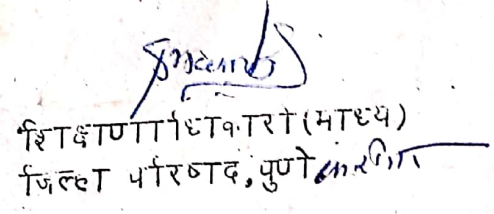 शिक्षणाधिकारी (माध्य)
जिल्हा परिषद, पुणे करिता